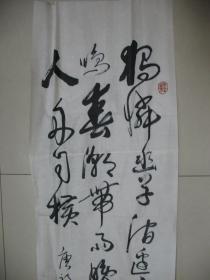 獨憐幽草澗邊
鳴春潮帶雨晚
人舟自橫 唐